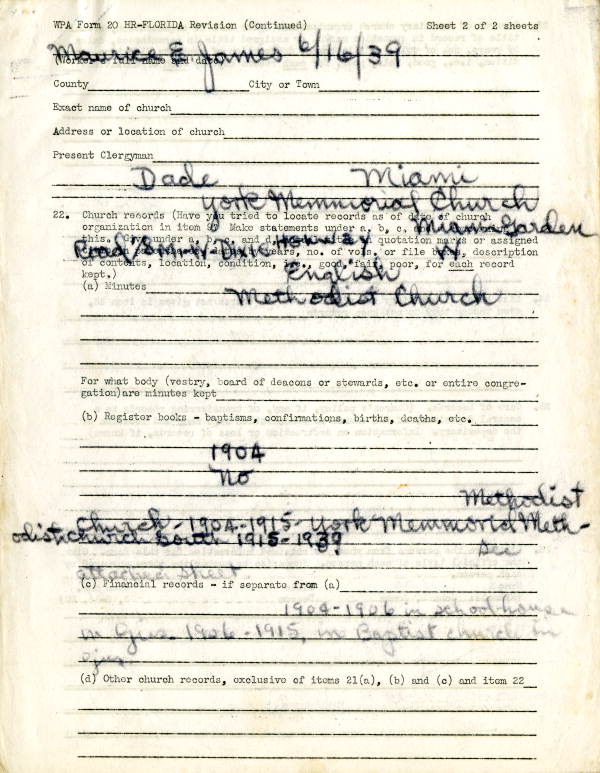 WPA Form 20 HR-FLORIDA Revision (Continued) Sheet 2 of 2 sheets
Maurice E. James 6/16/39
(Worker's full name and date)
County City or Town
Exact name of church
Address or location of church
Present Clergyman
Dade Miami
York Memmorial Church
22. Church records (Have you tried to locate records as of date of church
organization in item 9? Make statements under a, b, c, Miami Garden
this. (Give under a, b, c, and d, quotation marks or assigned
Road / S. M. W. Dixie Highway
years, no. of vols. or file b description
English
of contents, location, condition, i.e., good, fair, poor, for each record
kept.)
(a) Minutes
Methodist Church
For what body (vestry, board of deacons or stewards, etc. or entire congre-
gation) are minutes kept
(b) Register books - baptisms, confirmations, births, deaths, etc.
1904
No
Methodist
Church - 1904-1915- York Memmorid Meth-
odist church South 1915-1939
See
attached sheet
(c) Financial records - if separate from (a)
1904-1906 in schoolhouse
in Ojus. 1906-1915, in Baptist church in
Ojus.
(d) Other church records, exclusive of items 21(a), (b) and (c) and item 22